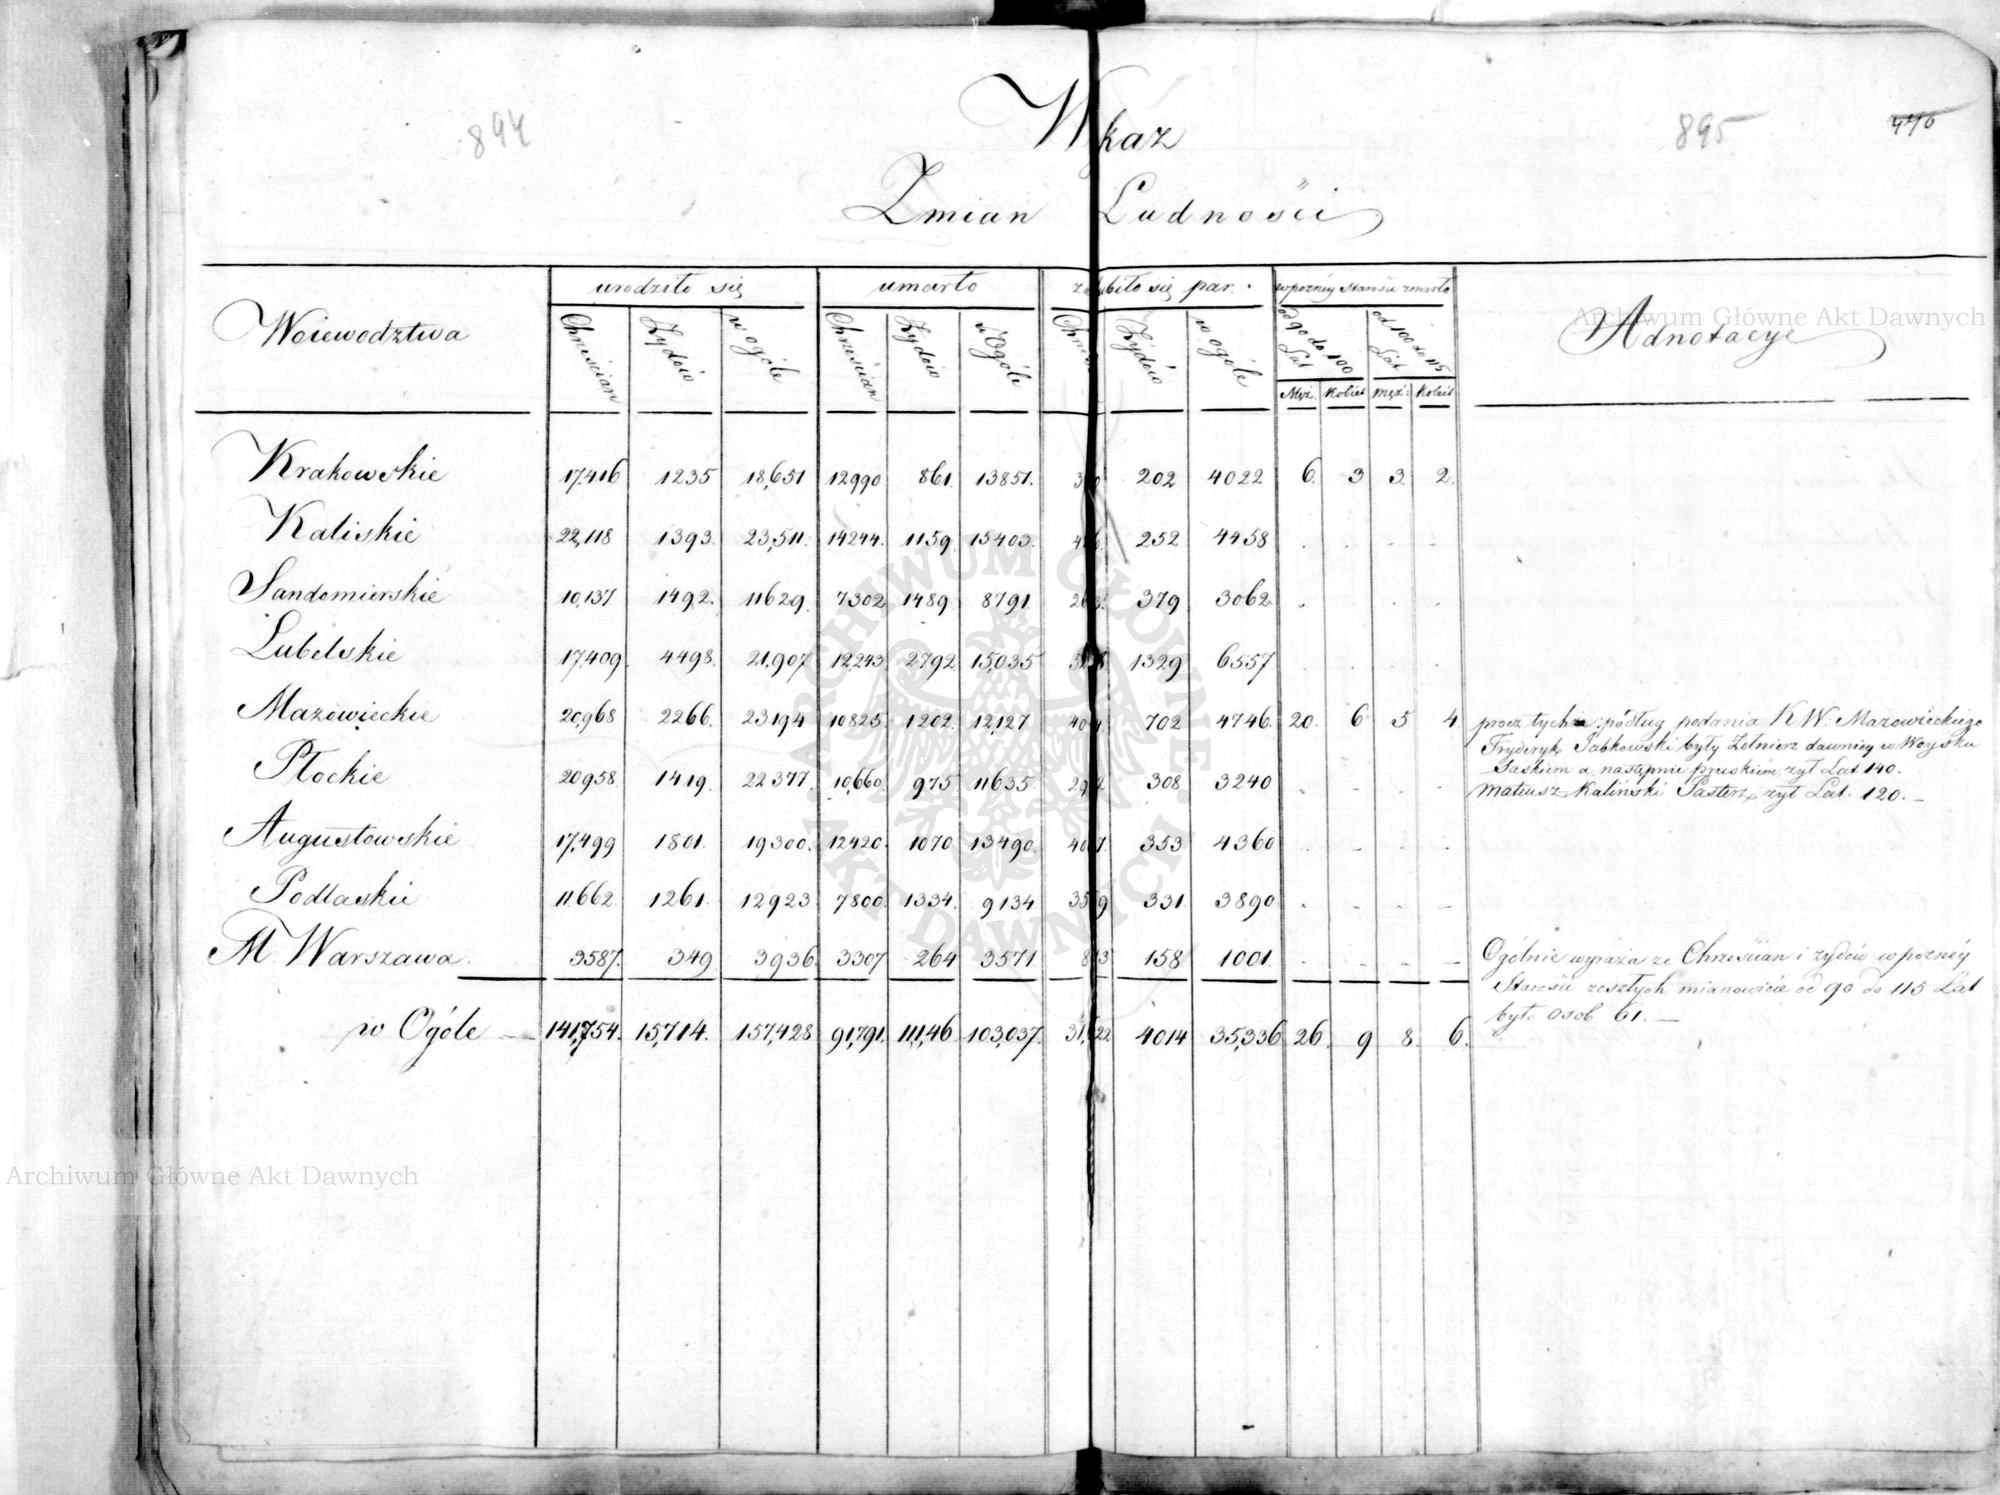 894
895
Wykaz
Zmian Ludności
Woiewodztwa urodziło się umarło zaślubiło się par. w poźnéy starości zmarło Adnotacye
Chrześcian Żydów w ogóle Chrześcian Żydów w Ogóle Żydów w ogóle od 90 do 100 Lat od 100 do 115 Lat
Męż. Kobiet Męż. Kobiet
Krakowskie 17,416 1235 18,651 12990 861. 13851. 202 4022 6. 3 3. 2.
Kaliskie 22,118 1393. 23,511. 14244. 1159. 15403. 252 4458
Sandomierskie 10,137 1492. 11629. 7302 1489 8791 379 3062.
Lubelskie 17,409. 4498. 21,907 12,243 2792. 15,035 1329 6557
Mazowieckie 20,968 2266. 23194 10825 1202. 12,127 702 4746. 20. 6 5 4
procz tychże podług podania K W. Mazowieckiego
Fryderyk Jabkowski były Żołnierz dawniey w Woysku
Saskiem a następnie pruskiém, żył Lat 140.
Mateusz Kaliński Pasterz, żył Lat. 120. –
Płockie 20958. 1419. 22377. 10,660. 975 11635. 308 3240
Augustowskie 17,499 1801. 19300. 12420. 1070 13490. 353 4360
Podlaskie 11662. 1261. 12923 7800. 1334. 9134 331. 3890
M. Warszawa. 3587. 349 3936. 3307 264 3571 158 1001.
Ogólnie wyraża ze Chrześcian i żydów w poznéy
Starości zeszłych mianowicie od 90 do 115 Lat
było osob 61. —
w Ogóle — 141,754. 15,714. 157,428 91,791. 111,46 103,037. 4014 35,336 26. 9 8. 6.
Archiwum Główne Akt Dawnych
Archiwum Główne Akt Dawnych
ARCHIWUM GŁÓWNE AKT DAWNYCH